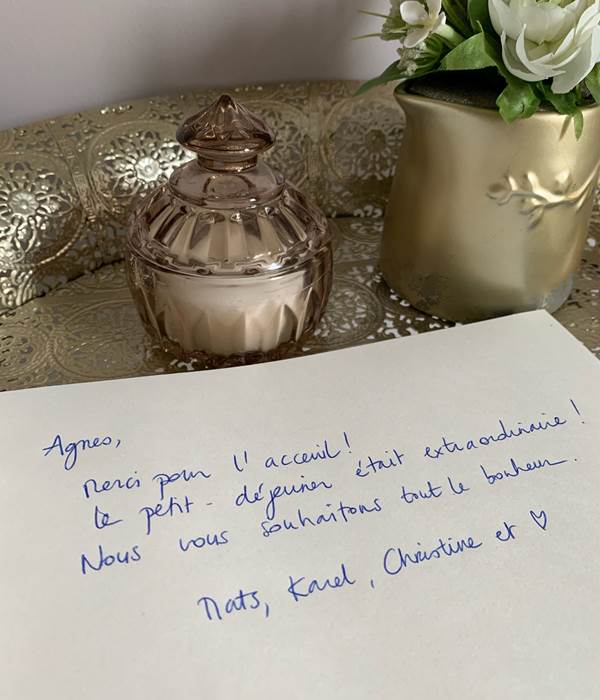 Agnes,
Merci pour l'acceuil!
Le petit-déjeuner était extraordinaire!
Nous vous souhaitons tout le bonheur.
Mats, Karel, Christine et ♡